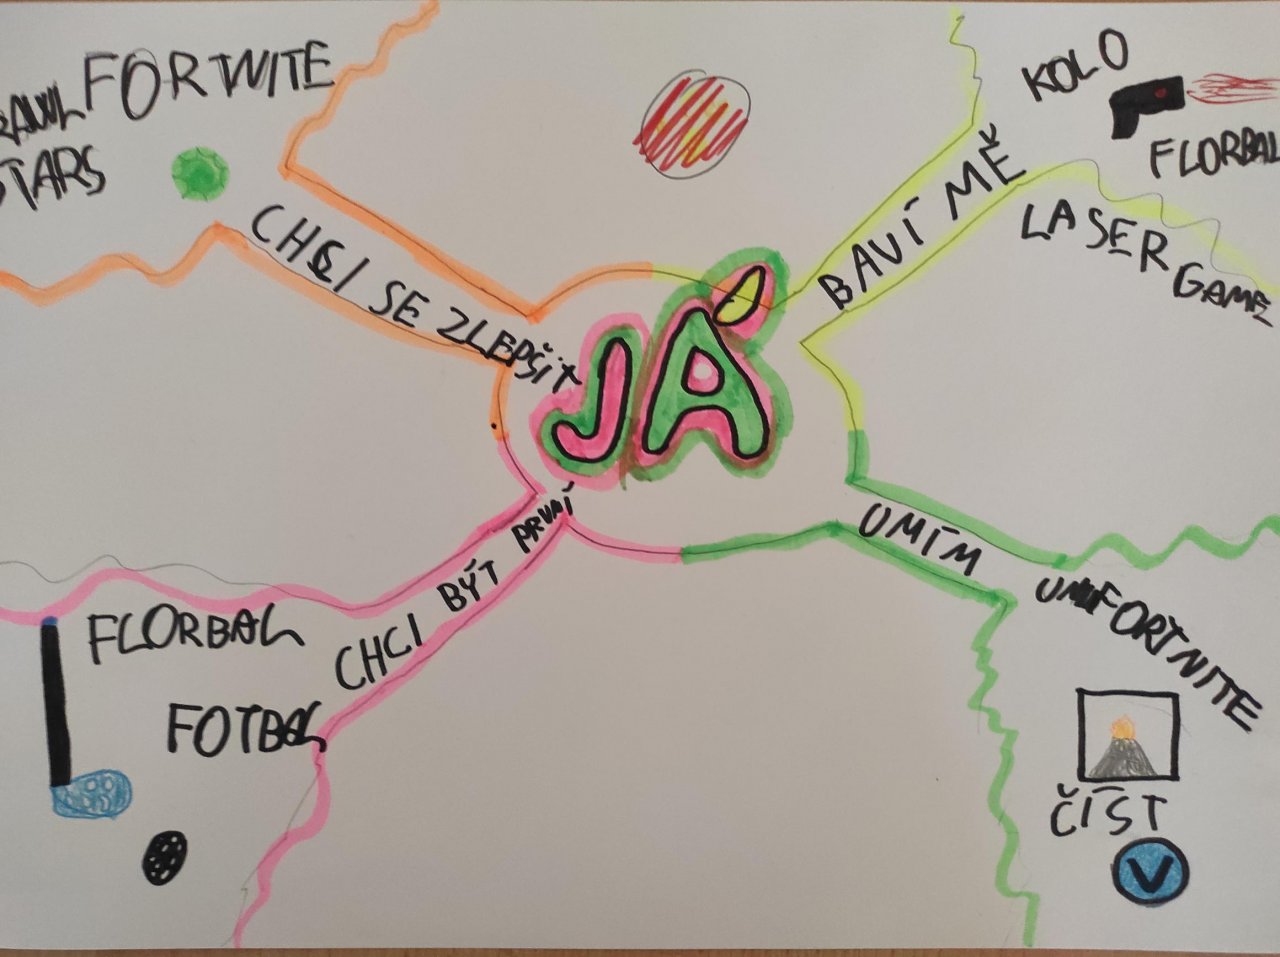 FORTNITE
RAWL
STARS
CHCI SE ZLEPŠIT
JÁ
BAVÍ MĚ
KOLO
FLORBAL
LASER
GAME
UMÍM
UMIFORTNITE
ČÍST
V
CHCI BÝT PRVNÍ
FLORBAL
FOTBAL